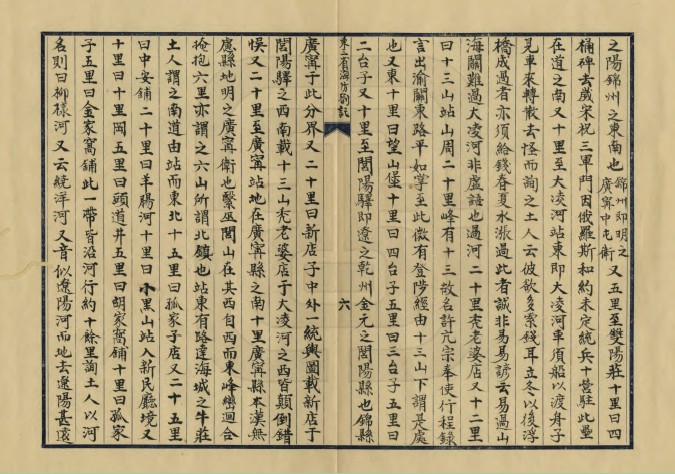 之陽錦州之東南也錦州即明之廣寧中屯衛又五里至雙陽莊十里曰四
桶碑去歲宋祝三軍門因俄羅斯和約未定統兵十營駐此壘
在道之南又十里至大凌河站東即大凌河車須船以渡舟子
見車來轉散去怪而詢之土人云彼欲多索錢耳立冬以後浮
橋成過者亦須給錢春夏水漲過此者誠非易易諺云易過山
海關難過大凌河非虛語也過河二十里禿老婆店又十二里
曰十三山站山周二十里峰有十三故名許亢宗奉使行程錄
言出渝關東路平如掌至此微有登陟經由十三山下謂是處
也又東十里曰望山堡十里曰四台子五里曰三台子五里曰
二台子又十里至閭陽驛即遼之乾州金元之閭陽縣也錦縣
東三省海防劄記
六
廣寧于此分界又二十里曰新店子中外一統輿圖載新店于
閭陽驛之西南載十三山禿老婆店于大凌河之西皆顛倒錯
悞又二十里至廣寧站地在廣寧縣之南十里廣寧縣本漢無
慮縣地明之廣寧衛也醫巫閭山在其西自西而東峰巒迴合
掩抱六里亦謂之六山所謂北鎮也站東有路達海城之牛莊
土人謂之南道由站而東北十五里曰孤家子店又二十五里
曰中安鋪二十里曰羊腸河十里曰小黑山站入新民廳境又
十里曰十里岡五里曰頭道井五里曰胡家窩鋪十里曰孤家
子五里曰金家窩鋪此一帶皆沿河行約十餘里詢土人以河
名則曰柳樣河又云繞洋河又音似遼陽河而地去遼陽甚遠